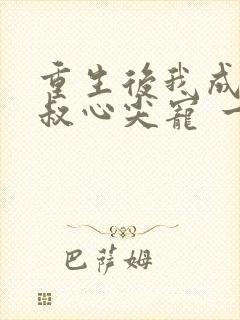 重生後我成
叔心尖寵 一
巴薩姆